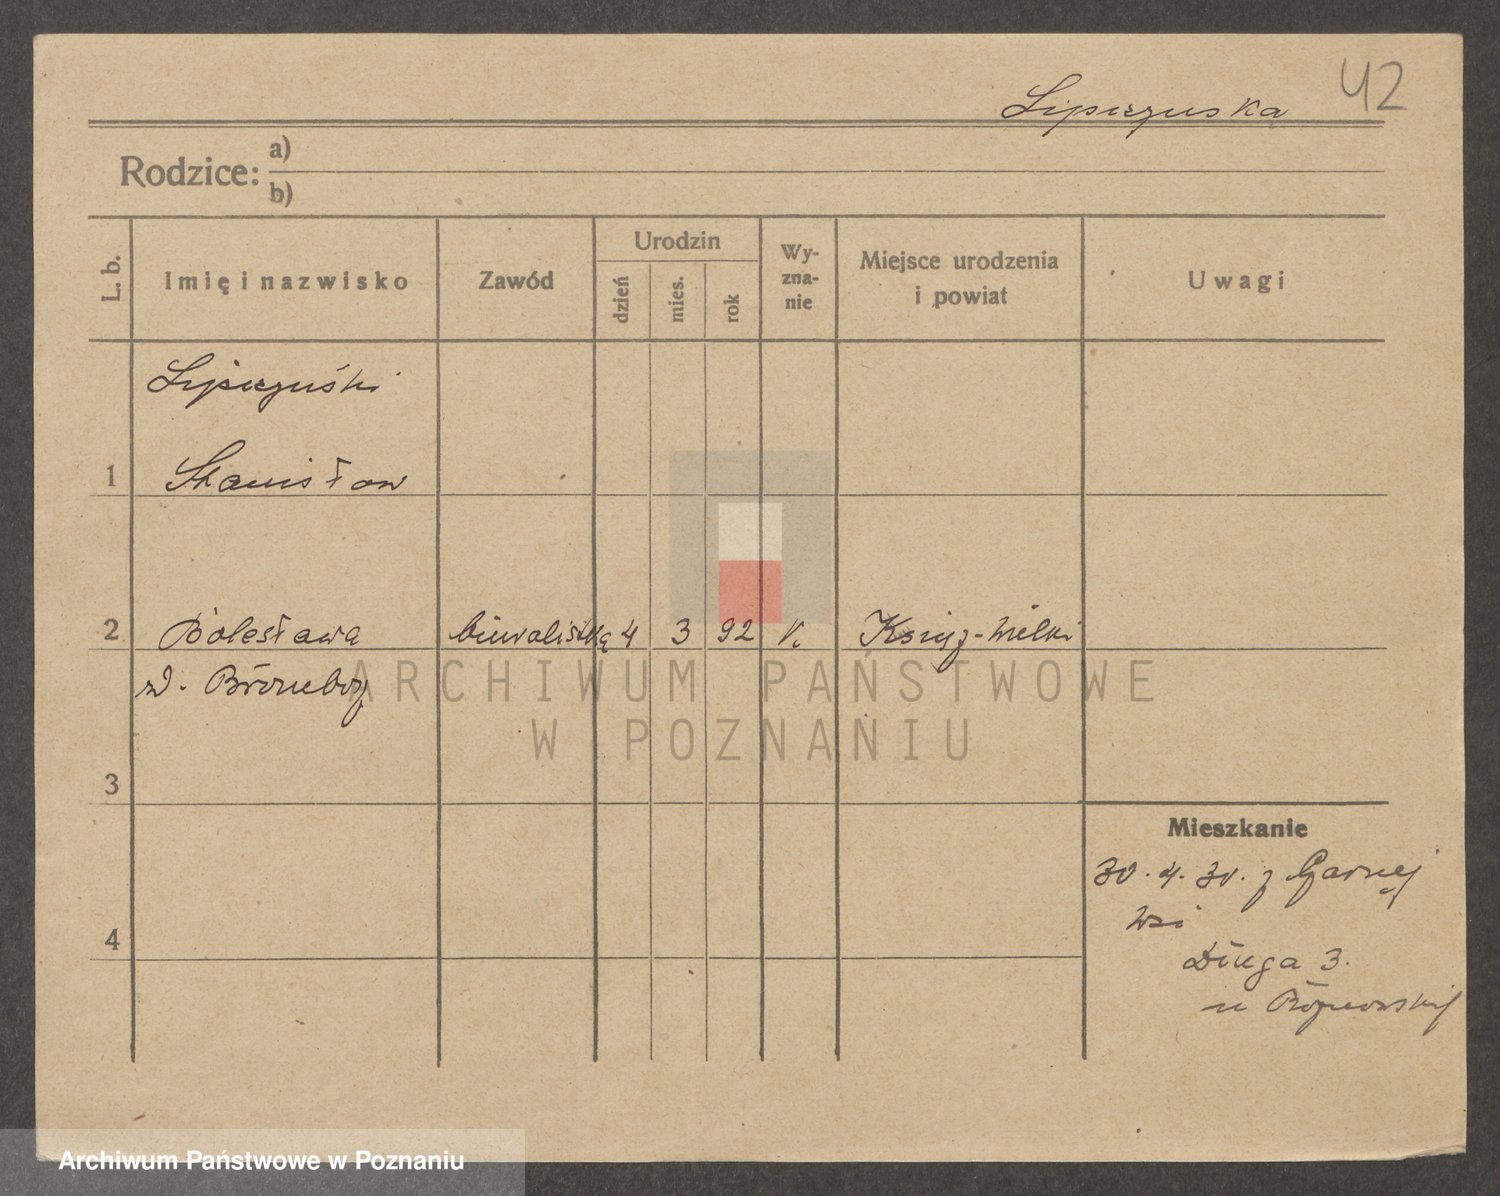 42
Lipczyńska
Rodzice: a)
b)
L. b.
Imię i nazwisko
Zawód
Urodzin
dzień
mies.
rok
Wy-
zna-
nie
Miejsce urodzenia
i powiat
Uwagi
Lipczyński
1 Stanisław
2 Bolesława biuralistka 4 3 92 k. Książ-Wielki
3
Mieszkanie
30.4.30. z Czarnej
Wsi
4
Długa 3.
u
ARCHIWUM PAŃSTWOWE
W POZNANIU
Archiwum Państwowe w Poznaniu